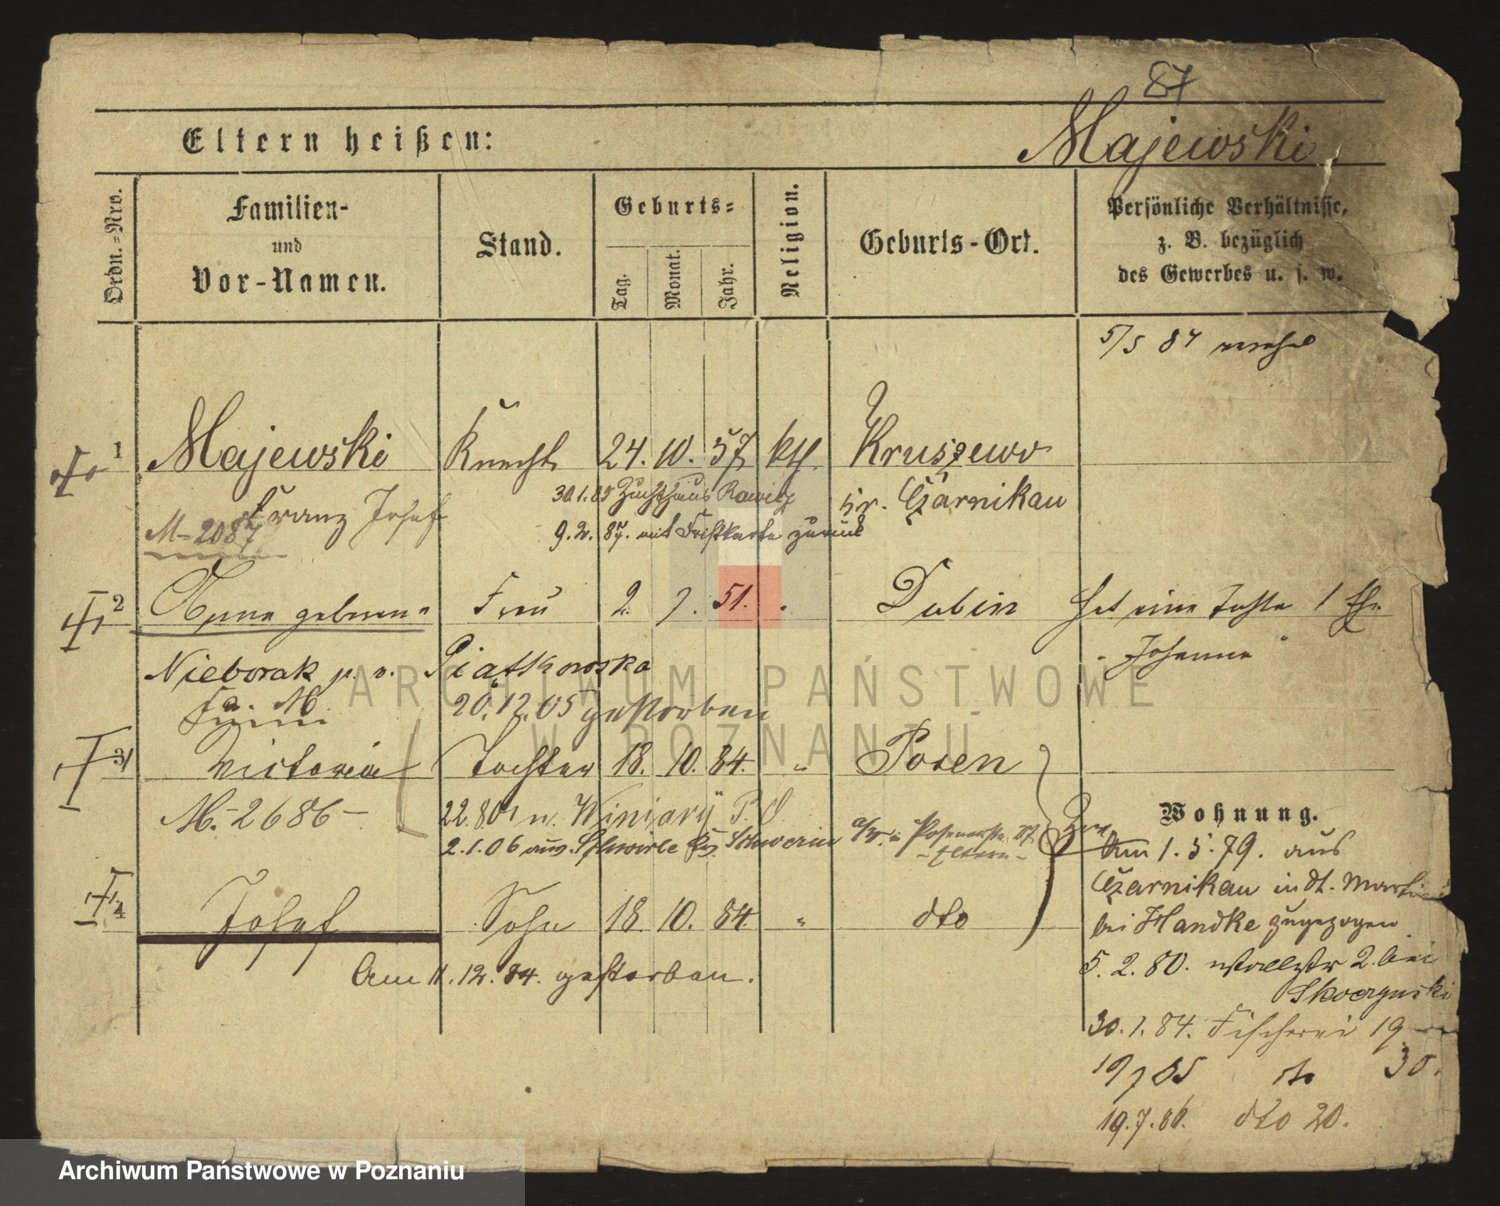 87
Eltern heißen: Majewski
Ordn.-Nro.
Familien-
und
Vor-Namen.
Stand.
Geburts-
Tag.
Monat.
Jahr.
Religion.
Geburts-Ort.
Persönliche Verhältnisse,
z. B. bezüglich
des Gewerbes u. s. w.
5/5 87
1 Majewski Knecht 24. 10. 57 kth. Kruszewo
Franz Josef 30.1.85 Zuchthaus Rawicz Kr. Czarnikau
M-2087 9.2.87. mit Fristkarte zurück
2 Anna geborene Frau 2. 7. 51. " Dubin Hat eine Tochter
Nieborak p. v. Piątkowska "Johanna"
Fa. M. 20.12.05 gestorben
3 Victoria Tochter 18. 10. 84. " Posen
M.-2686- 22.8.01 n. Winiary P.O
2.1.06 aus Schwirle Kr. Schwerin
- Eltern -
4 Josef Sohn 18. 10. 84. " dto
Am 11.12.84. gestorben.
Wohnung.
Am 1.5.79. aus
Czarnikau in St. Martin
bei Handke zugezogen
5.2.80. Wallstr 2. bei
Skoczynski
30.1.84. Fischerei 19
19 7 85 dto 30.
19.7.86. dto 20.
ARCHIWUM PAŃSTWOWE
W POZNANIU
Archiwum Państwowe w Poznaniu